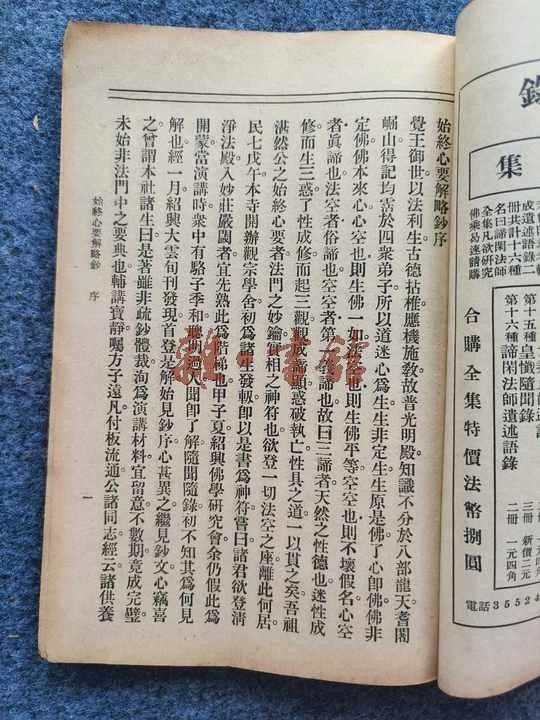 始終心要解略鈔序
覺王御世。以法利生。古德拈椎。應機施敎。故普光明殿。知識不分於八部龍天。耆闍
崛山。得記均霑於四衆弟子。所以道迷心爲生。生非定生。生原是佛。了心卽佛。佛非
定佛。佛本來心。心空也則生佛一如。法空也則生佛平等。空空也則不壞假名。心空
者眞諦也。法空者俗諦也。空空者第一義諦也。故曰三諦者天然之性德也。迷性成
修而生三惑。了性成修而起三觀。觀成諦顯。惑破執亡。性具之道。一以貫之矣。吾祖
湛然公之始終心要者。法門之妙鑰。實相之神符也。欲登一切法空之座。離此何居。
民七戊午。本寺開辦觀宗學舍。初爲諸生發軔。卽以是書爲神符。嘗曰諸君欲登清
淨法殿。入妙莊嚴國者。宜先熟此爲階梯也。甲子夏。紹興佛學研究會。余仍假此爲
開蒙。當演講時。衆中有駱子季和。聰明過人。聞卽了解。隨聞隨錄。初不知其爲何見
解也。經一月。紹興大雲旬刊發現。首登是解。始見鈔序。心甚異之。繼見鈔文。心竊喜
之。曾謂本社諸生曰。是著雖非疏鈔體裁。洵爲演講材料。宜留意。不數期竟成完璧。
未始非法門中之要典也。輔講寶靜。囑方子遠凡付板流通。公諸同志。經云。諸供養
始終心要解略鈔 序
一
錄
集
成遺述語錄二
冊共計十六種
名曰諦閑法師
全集凡欲研究
佛乘易速請購
第十五種 皇懺隨聞錄 三冊 新價二元
第十六種 諦閑法師遺述語錄 二冊 一元四角
合購全集特價法幣捌圓
電話35524